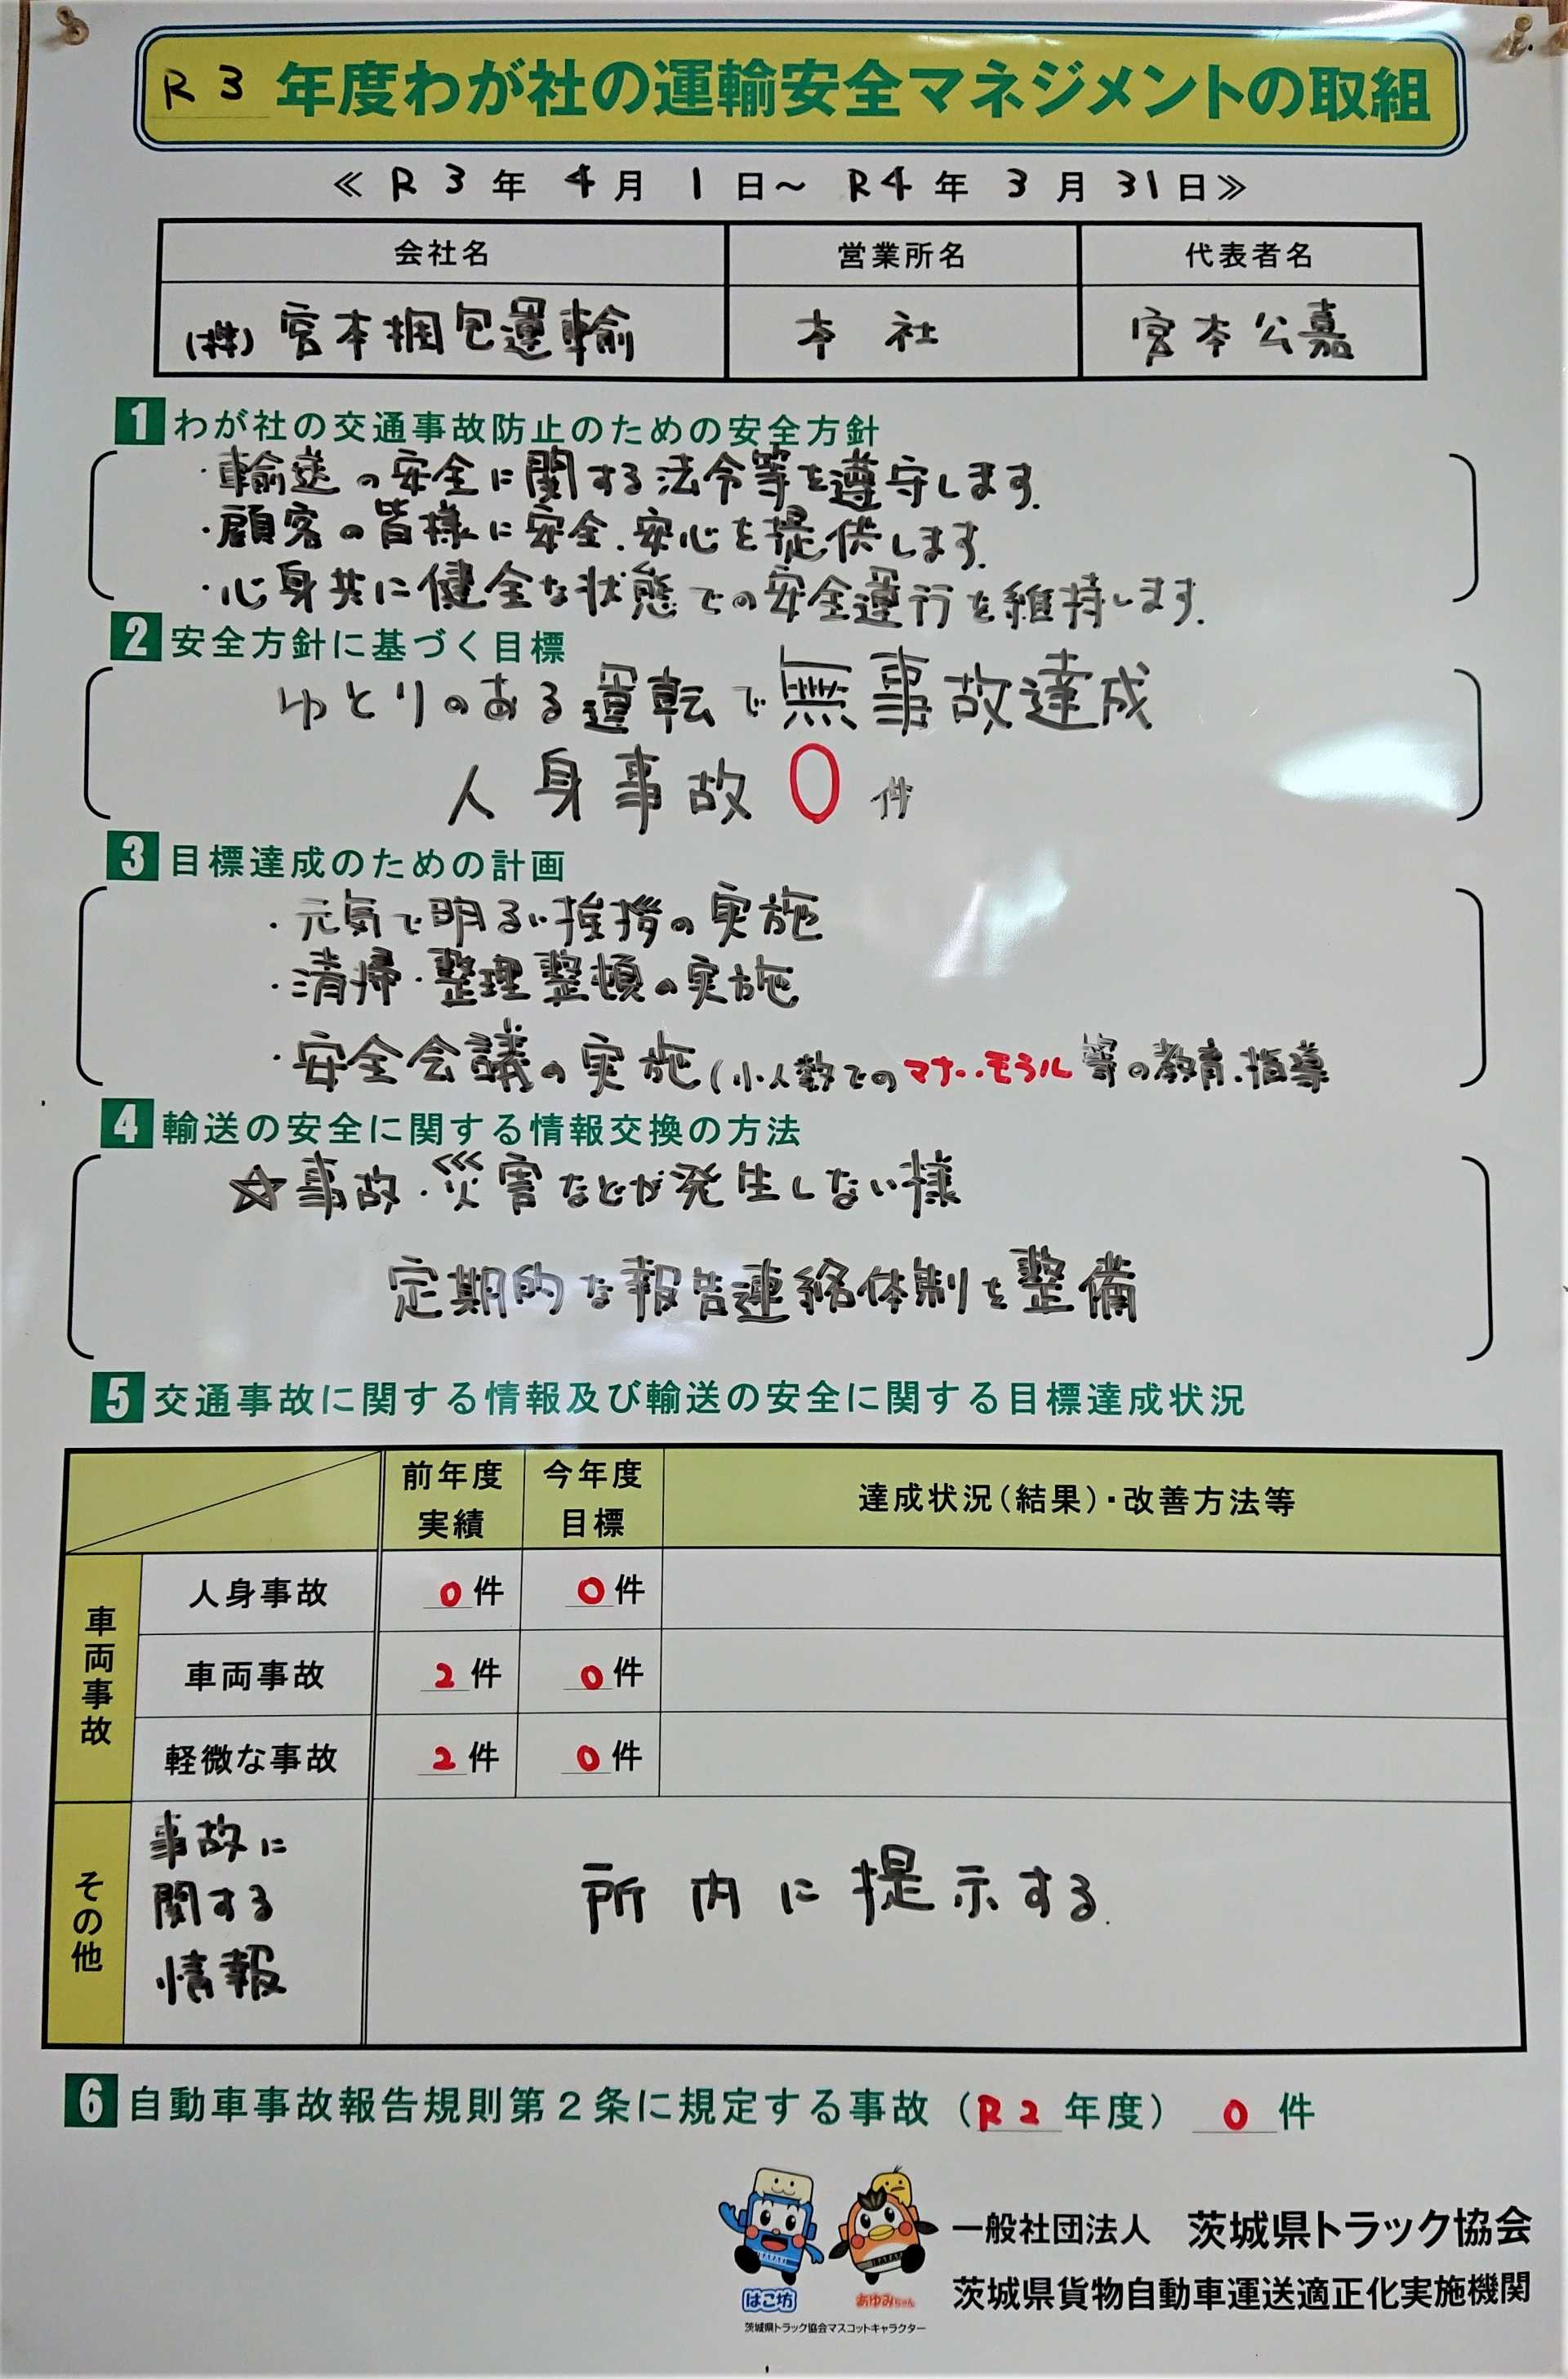 R3 年度わが社の運輸安全マネジメントの取組
≪ R3年 4月 1日～ R4年 3月 31日≫
会社名 営業所名 代表者名
(株)宮本梱包運輸 本社 宮本公嘉
1 わが社の交通事故防止のための安全方針
・輸送の安全に関する法令等を遵守します.
・顧客の皆様に安全.安心を提供します.
・心身共に健全な状態での安全運行を維持します.
2 安全方針に基づく目標
ゆとりのある運転で無事故達成
人身事故 0 件
3 目標達成のための計画
・元気で明るい挨拶の実施
・清掃・整理整頓の実施
・安全会議の実施(小人数でのマナー.モラル等の教育.指導
4 輸送の安全に関する情報交換の方法
☆事故・災害などが発生しない様
定期的な報告連絡体制を整備
5 交通事故に関する情報及び輸送の安全に関する目標達成状況
前年度実績 今年度目標 達成状況(結果)・改善方法等
車両事故
人身事故 0件 0件
車両事故 2件 0件
軽微な事故 2件 0件
その他
事故に
関する
情報
所内に提示する.
6 自動車事故報告規則第2条に規定する事故(R2年度) 0件
はこ坊 あゆみちゃん
茨城県トラック協会マスコットキャラクター
一般社団法人 茨城県トラック協会
茨城県貨物自動車運送適正化実施機関